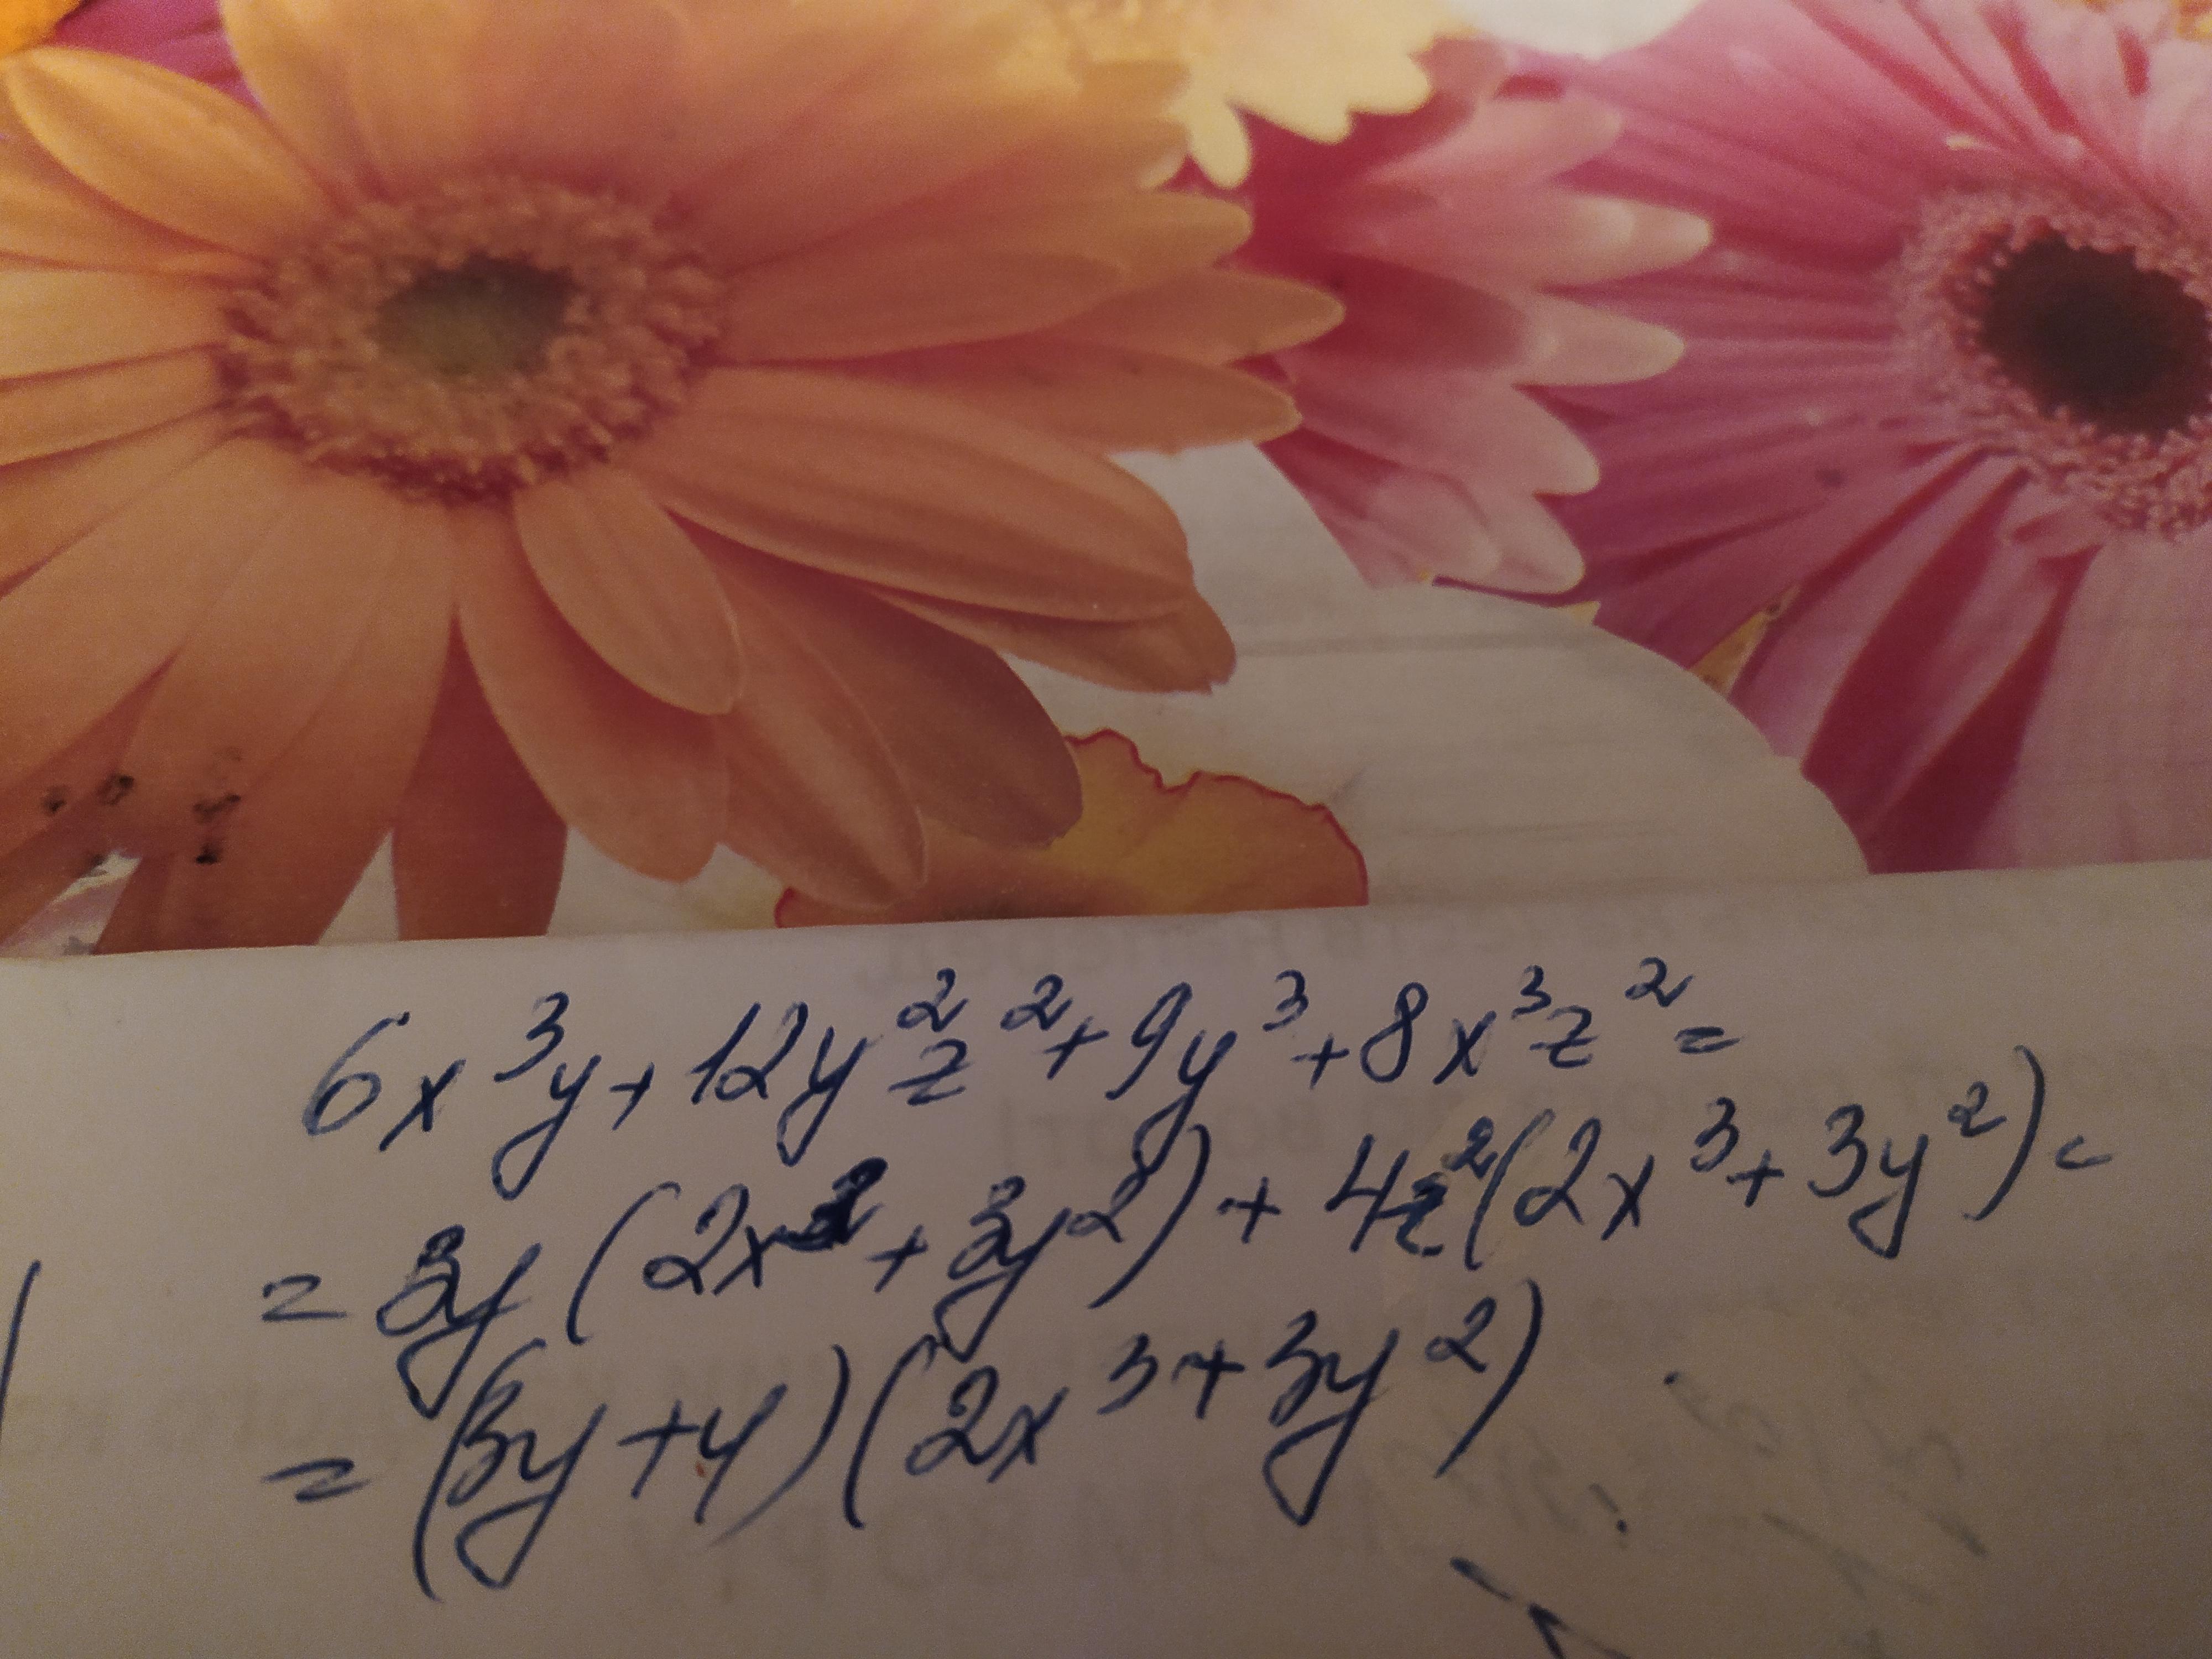 6x³y+12y²z²+9y³+8x³z²=
=3y(2x³+3y²)+4z²(2x³+3y²)=
=(3y+4)(2x³+3y²)